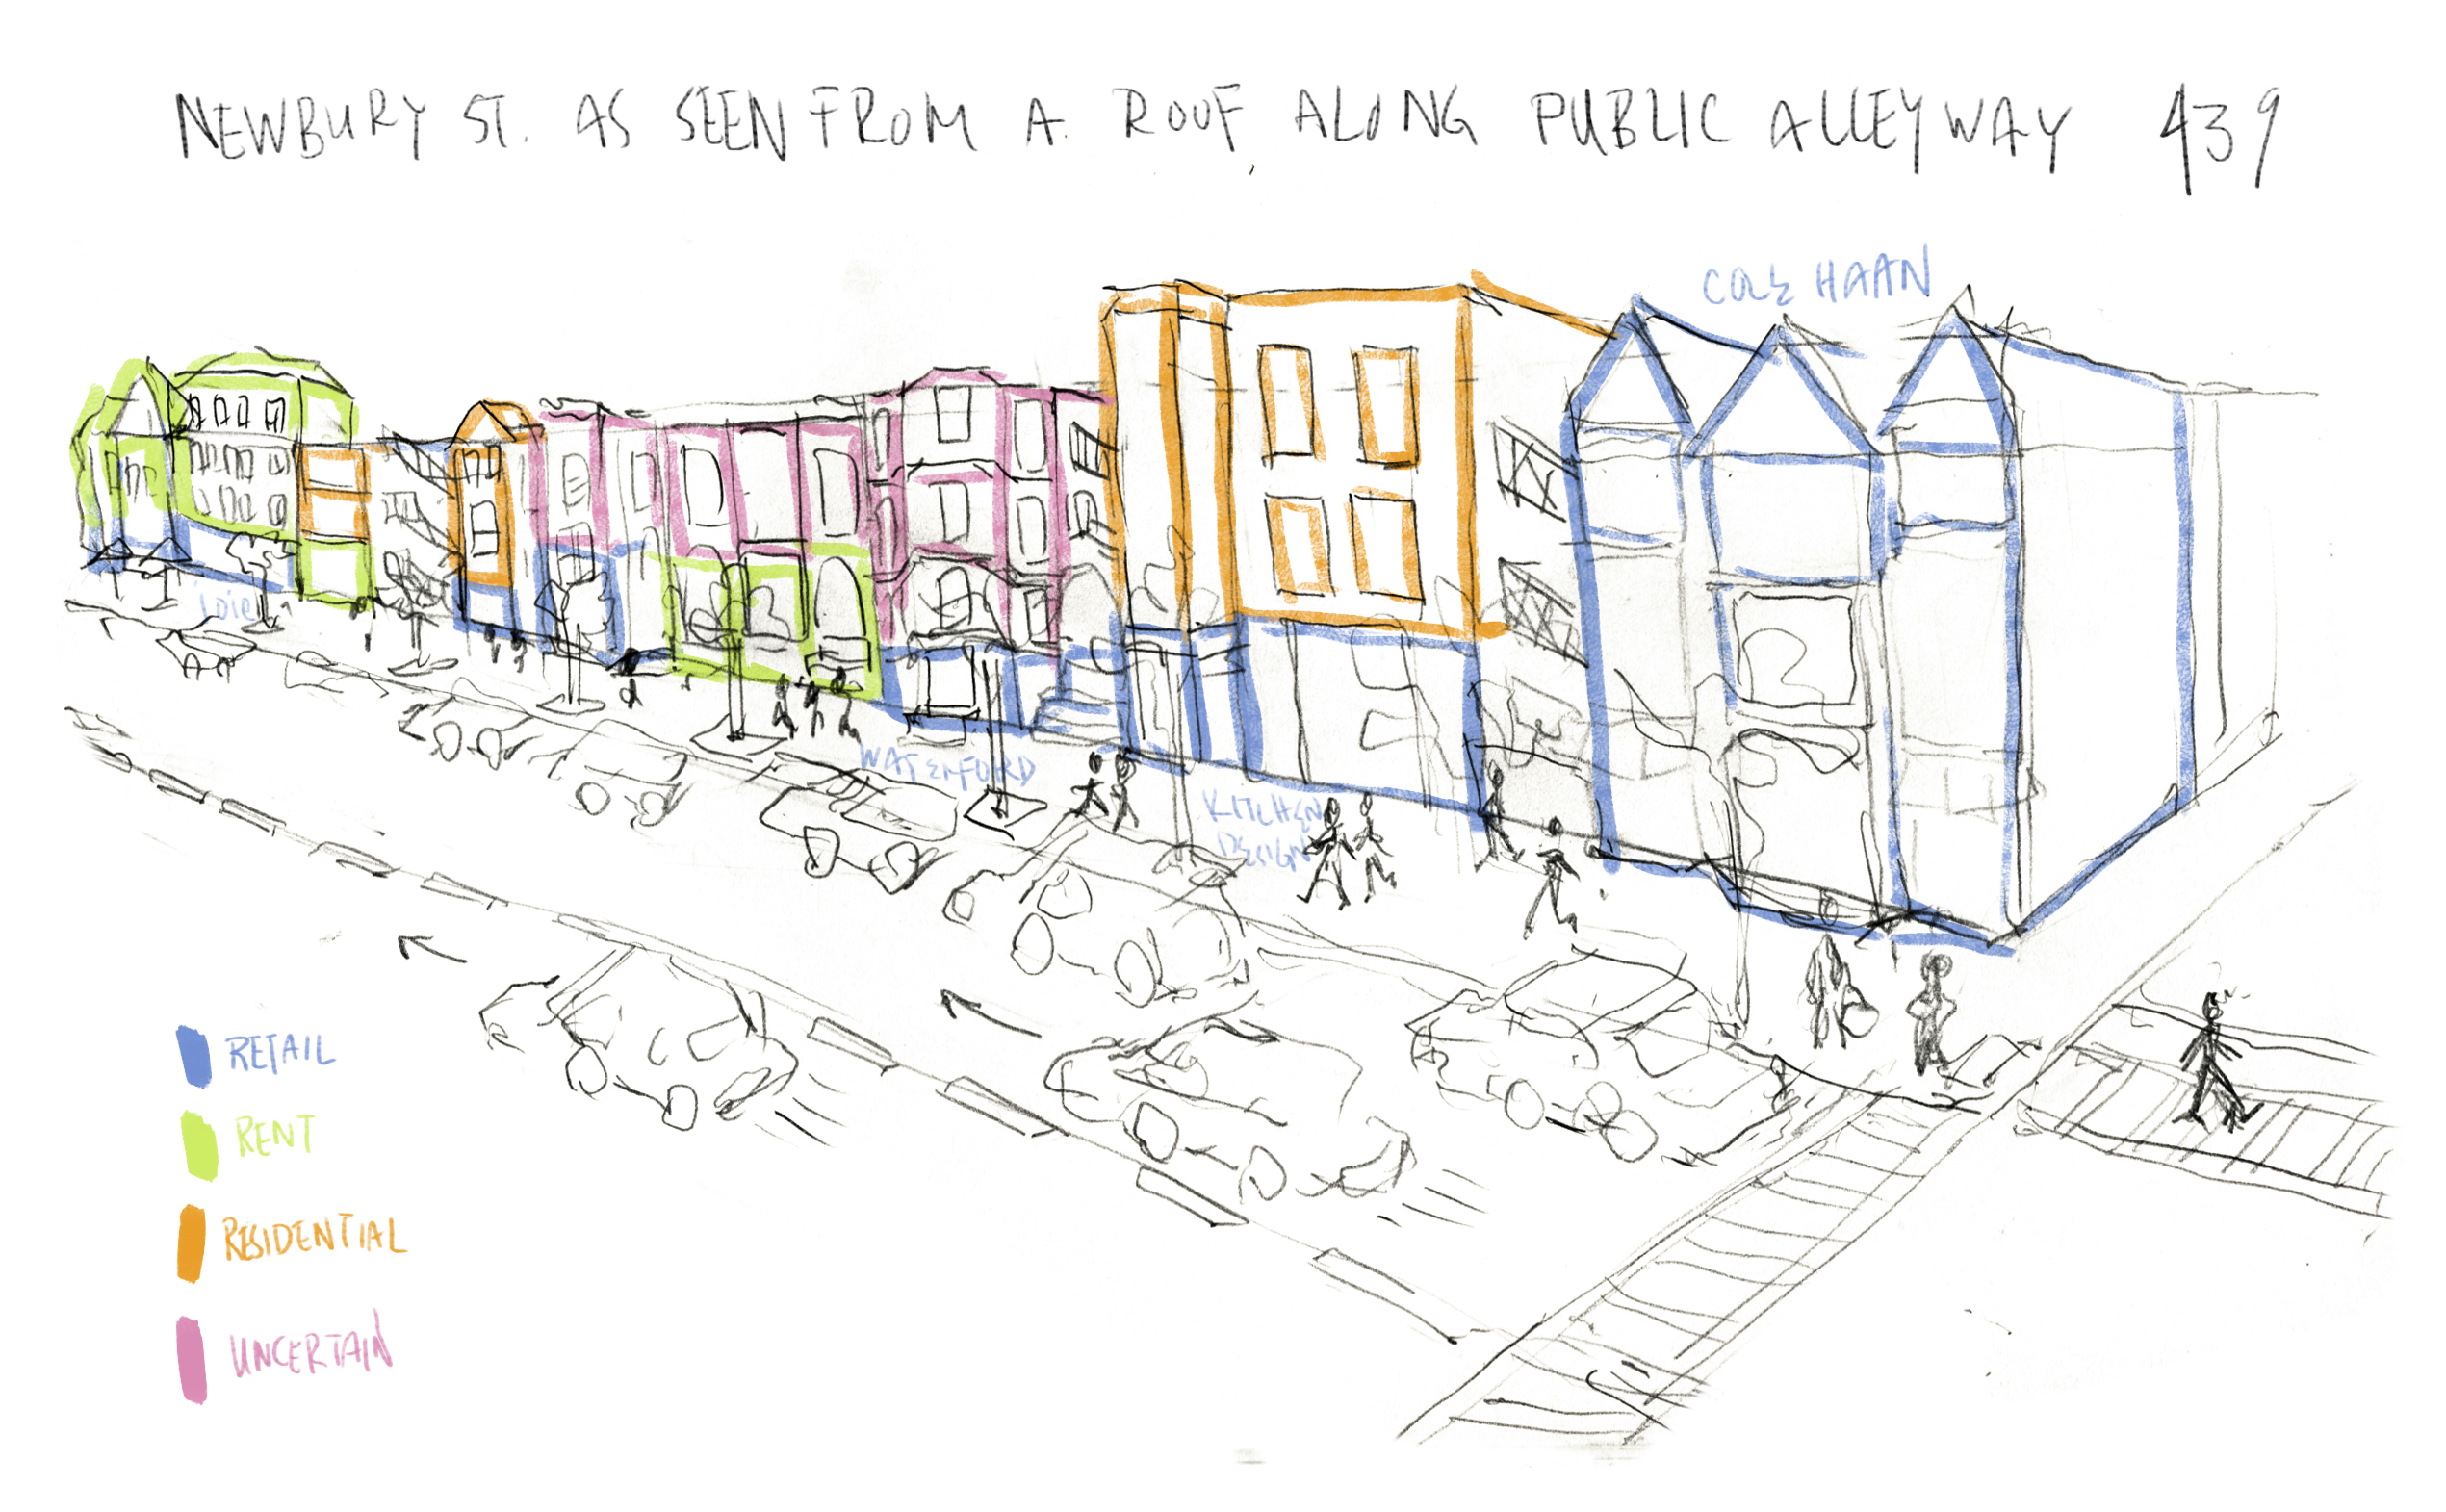 NEWBURY ST. AS SEEN FROM A ROOF, ALONG PUBLIC ALLEYWAY 439
COLE HAAN
WATERFORD
KITCHEN
DESIGN
RETAIL
RENT
RESIDENTIAL
UNCERTAIN